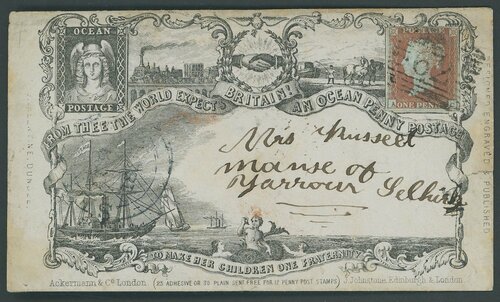 OCEAN
POSTAGE
POSTAGE
ONE PENNY
BRITAIN!
FROM THEE THE WORLD EXPECTS AN OCEAN PENNY POSTAGE
Mrs Russell
Manse of
Yarrow Selkirk
TO MAKE HER CHILDREN ONE FRATERNITY
Ackermann & Co London (25 ADHESIVE OR TO PLAIN SENT FREE FOR 12 PENNY POST STAMPS) J. Johnstone, Edinburgh & London
ENGRAVED & PUBLISHED